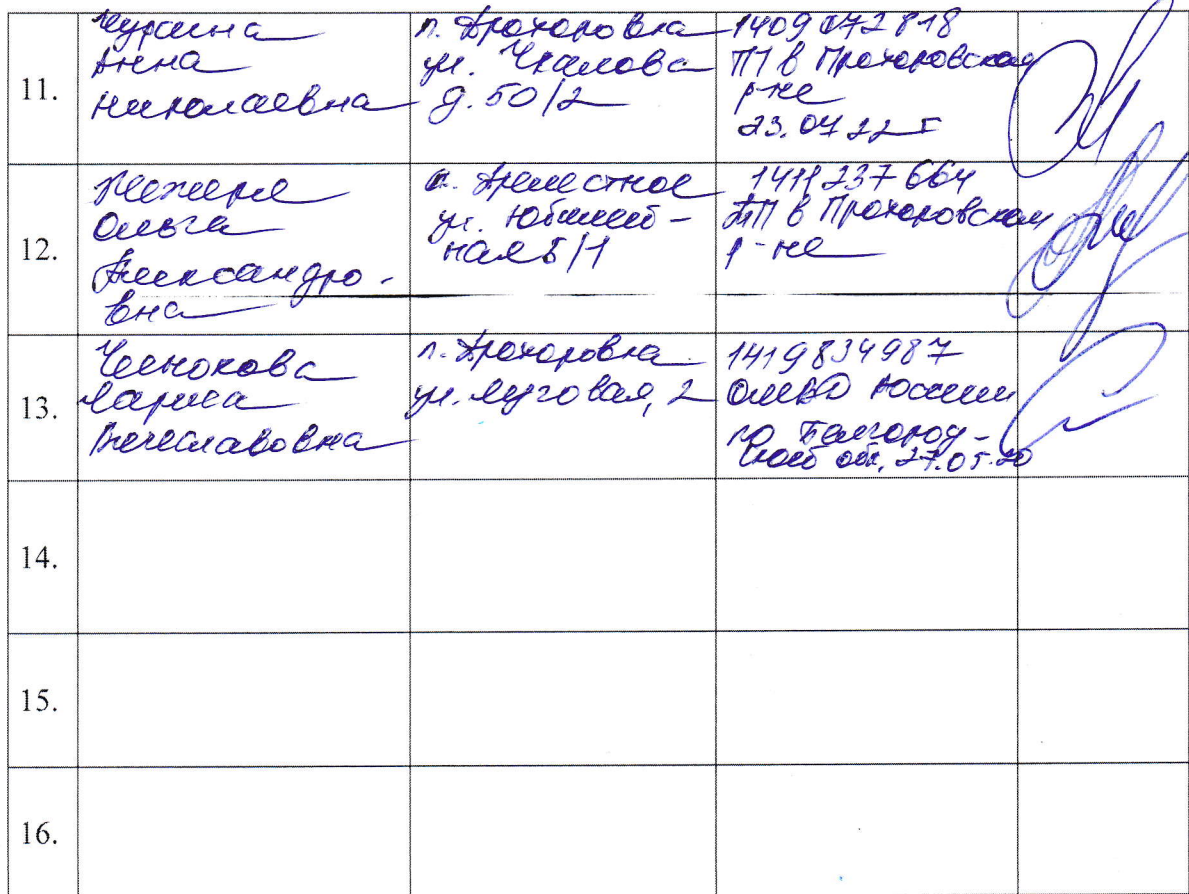 11.
Анна
Николаевна
п. Прохоровка
ул. Чкалова
д. 50/2
ТП в Прохоровском
р-не
12.
Ольга
Александро-
вна
с. Прелестное
ул. Юбилей-
ная 5/1
1411 237 664
ТП в Прохоровском
р-не
13.
Чеснокова
Лариса
Вячеславовна
п. Прохоровка
ул. Луговая, 2
1419834987
УМВД России
по Белгород-
ской обл, 27.05.20
14.
15.
16.